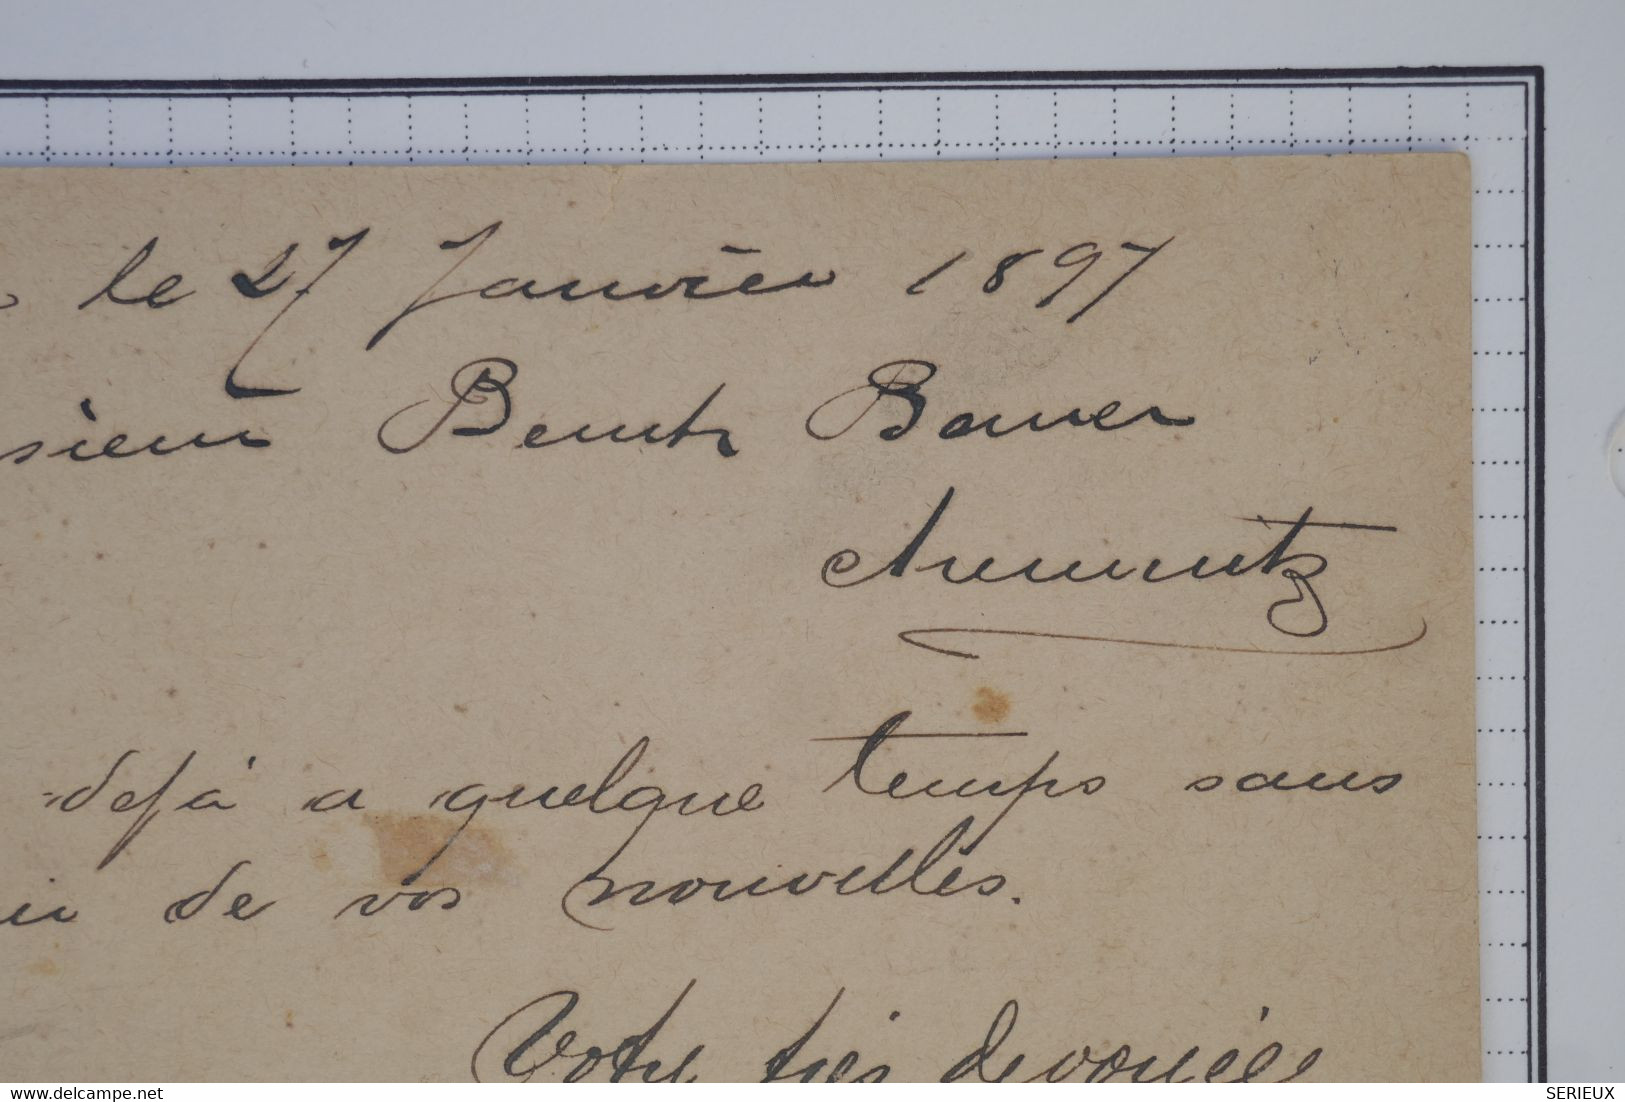 le 27 Janvier 1897
sieur Bentz Bauer
Chemnitz
déjà a quelque temps sans
de vos nouvelles.
Votre très dévouée
delcampe.net
SERIEUX